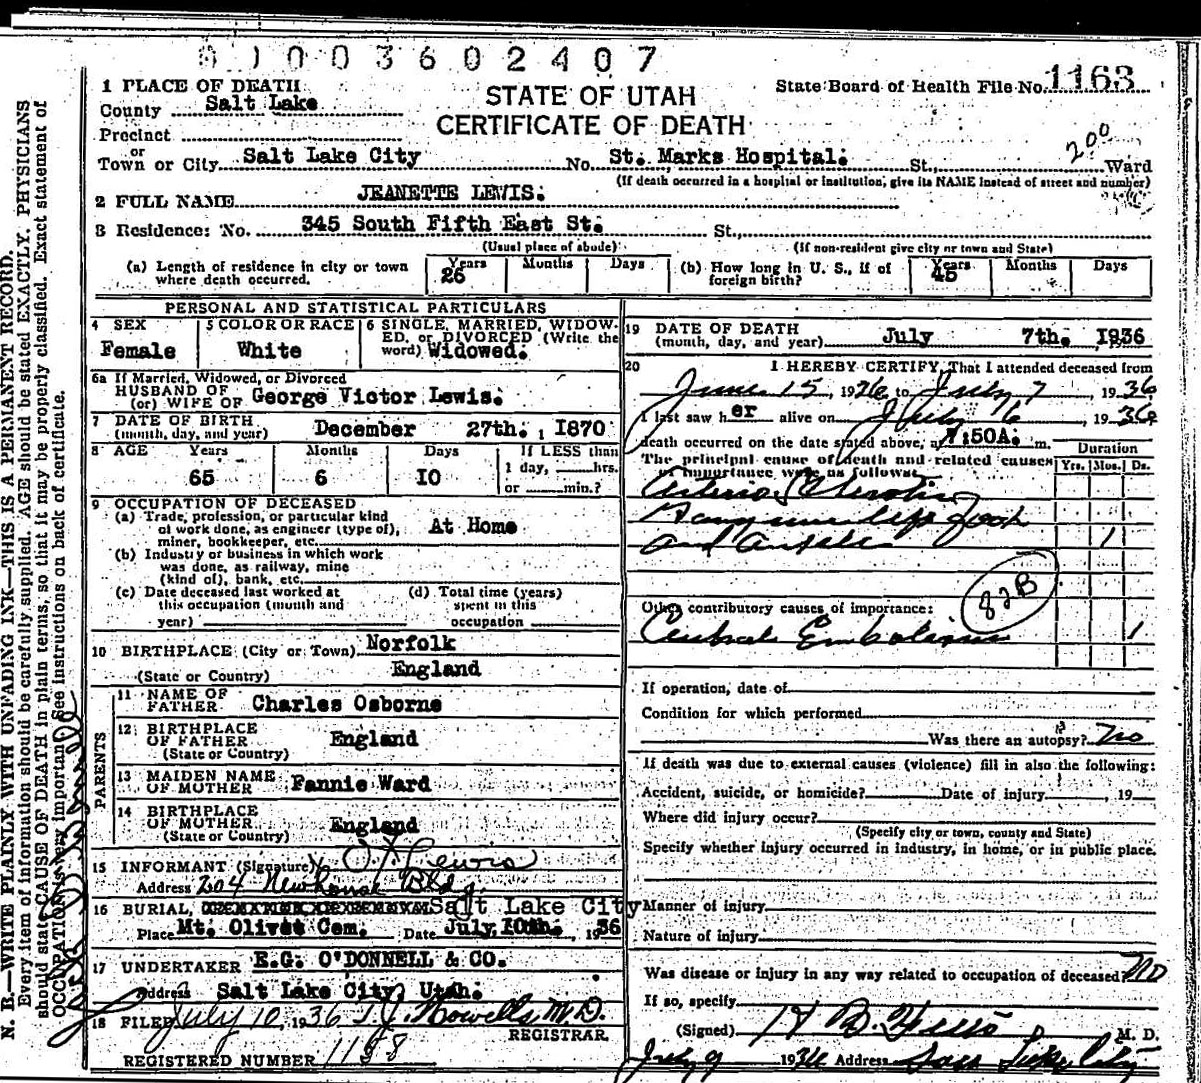 01003602407
1 PLACE OF DEATH
County Salt Lake
Precinct
or
Town or City Salt Lake City No. St. Marks Hospital. St., Ward
STATE OF UTAH
CERTIFICATE OF DEATH
State Board of Health File No. 1163
200
(If death occurred in a hospital or institution, give its NAME instead of street and number)
2 FULL NAME JEANETTE LEWIS.
3 Residence: No. 345 South Fifth East St. St.,
(Usual place of abode) (If non-resident give city or town and State)
(a) Length of residence in city or town where death occurred. Years 26 Months Days
(b) How long in U. S., if of foreign birth? Years 45 Months Days
PERSONAL AND STATISTICAL PARTICULARS
4 SEX Female
5 COLOR OR RACE White
6 SINGLE, MARRIED, WIDOWED, or DIVORCED (Write the word) Widowed.
6a If Married, Widowed, or Divorced
HUSBAND OF
(or) WIFE OF George Victor Lewis.
7 DATE OF BIRTH
(month, day, and year) December 27th. , 1870
8 AGE Years 65 Months 6 Days 10 If LESS than 1 day, hrs. or min.?
9 OCCUPATION OF DECEASED
(a) Trade, profession, or particular kind of work done, engineer (type of), miner, bookkeeper, etc. At Home
(b) Industry or business in which work was done, as railway, mine (kind of), bank, etc.
(c) Date deceased last worked at this occupation (month and year)
(d) Total time (years) spent in this occupation
10 BIRTHPLACE (City or Town) Norfolk
(State or Country) England
PARENTS
11 NAME OF FATHER Charles Osborne
12 BIRTHPLACE OF FATHER (State or Country) England
13 MAIDEN NAME OF MOTHER Fannie Ward
14 BIRTHPLACE OF MOTHER (State or Country) England
15 INFORMANT (Signature) Lewis
Address 204 Newhouse Bldg.
16 BURIAL, Salt Lake City
Place Mt. Olivet Cem. Date July 10th. , 1936
17 UNDERTAKER E.G. O'DONNELL & CO.
Address Salt Lake City, Utah.
18 FILED July 10, 1936 Howells M.D.
REGISTRAR.
REGISTERED NUMBER 1158
19 DATE OF DEATH
(month, day, and year) July 7th. 1936
20 I HEREBY CERTIFY, That I attended deceased from
June 15, 1936 to July 7, 1936
I last saw her alive on July 6, 1936
death occurred on the date stated above, at :50A. m.
The principal cause of death and related causes of importance were as follows:
Duration
Yrs. Mos. Ds.
Arterio Sclerotic
Gangrene left foot
and ankle 1
82B
Other contributory causes of importance:
Cerebral Embolism 1
If operation, date of
Condition for which performed
Was there an autopsy? No
If death was due to external causes (violence) fill in also the following:
Accident, suicide, or homicide? Date of injury , 19
Where did injury occur?
(Specify city or town, county and State)
Specify whether injury occurred in industry, in home, or in public place.
Manner of injury
Nature of injury
Was disease or injury in any way related to occupation of deceased? No
If so, specify
(Signed) M. D.
July 9 1936 Address Salt Lake City
N. B.—WRITE PLAINLY WITH UNFADING INK—THIS IS A PERMANENT RECORD.
Every item of information should be carefully supplied. AGE should be stated EXACTLY. PHYSICIANS
should state CAUSE OF DEATH in plain terms, so that it may be properly classified. Exact statement of
OCCUPATION is very important. See instructions on back of certificate.